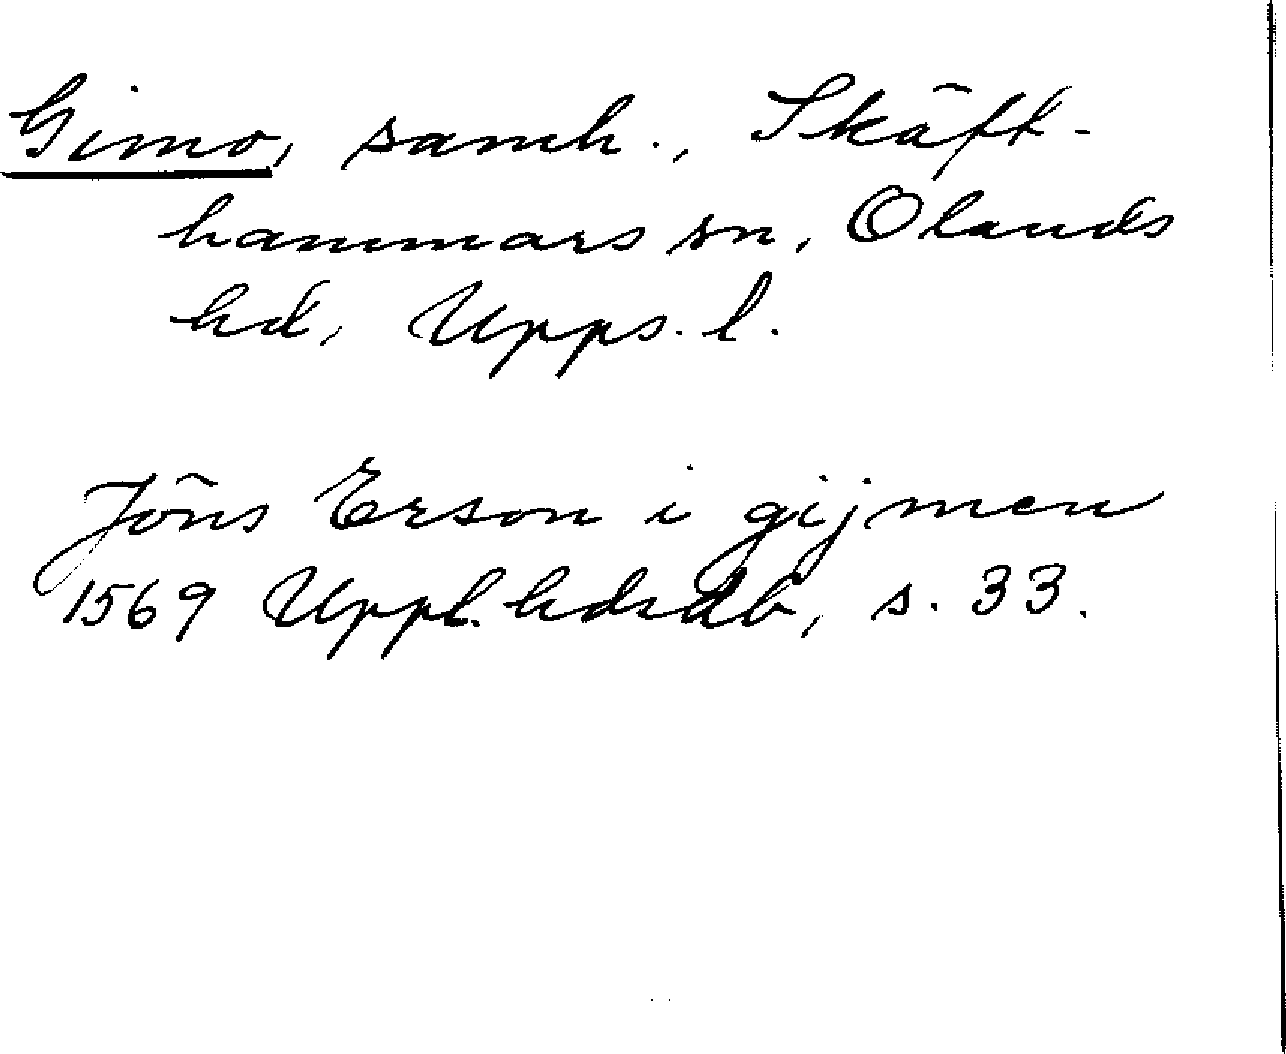 Gimo, samh., Skäft-
hammars sn, Olands
hd, Upps. l.
Jöns Erson i gijmen
1569 Uppl. hdsdb, s. 33.